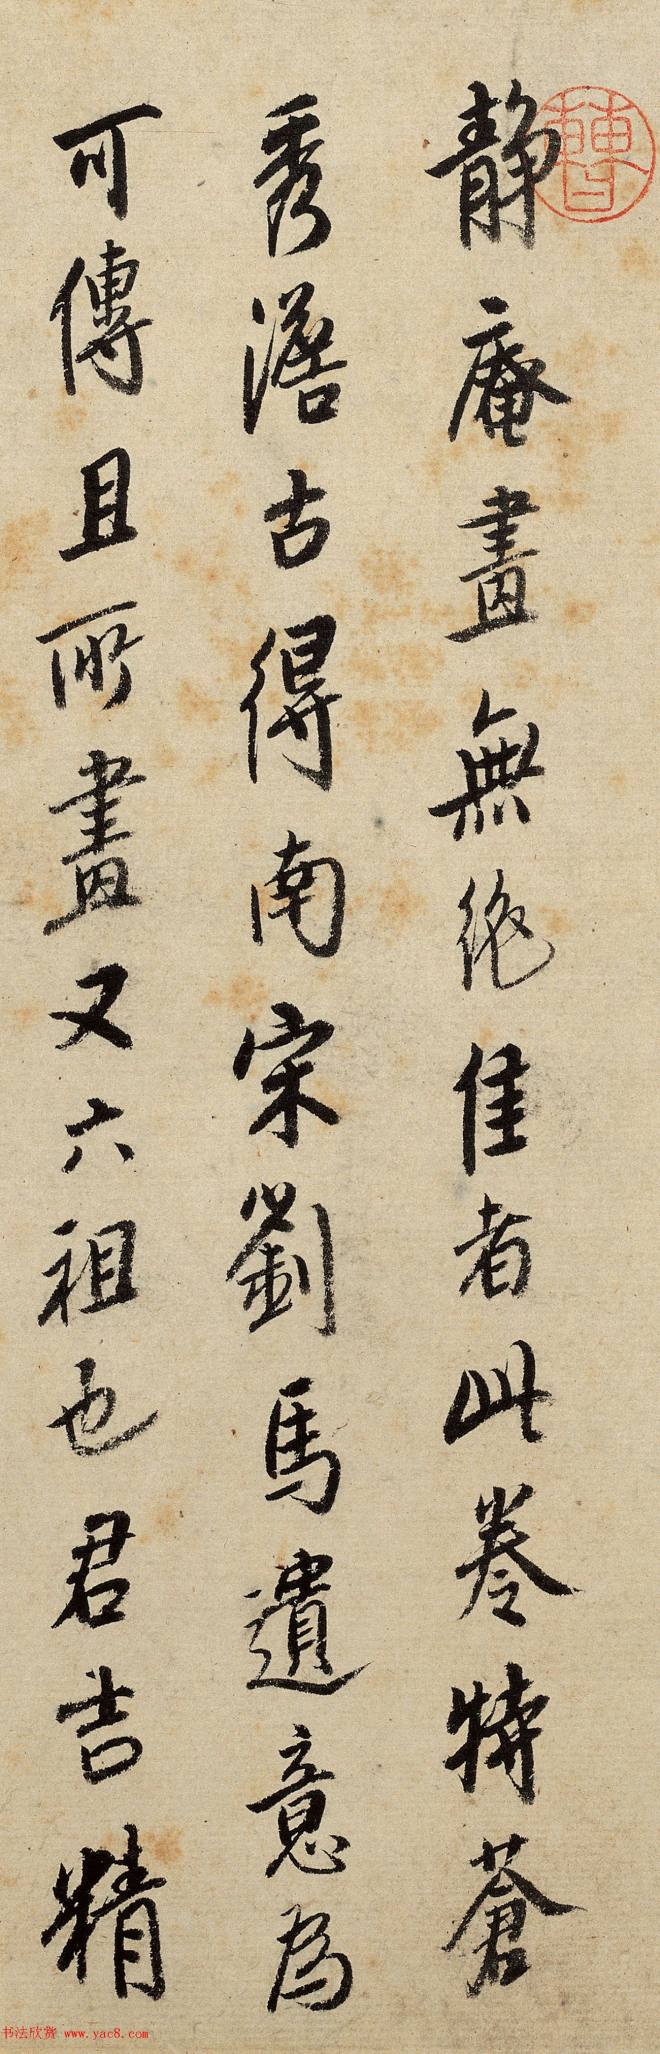 靜庵畫無絕佳者此卷特蒼
秀澹古得南宋劉馬遺意為
可傳且所畫又六祖也君吉精
曹
书法欣赏 www.yac8.com